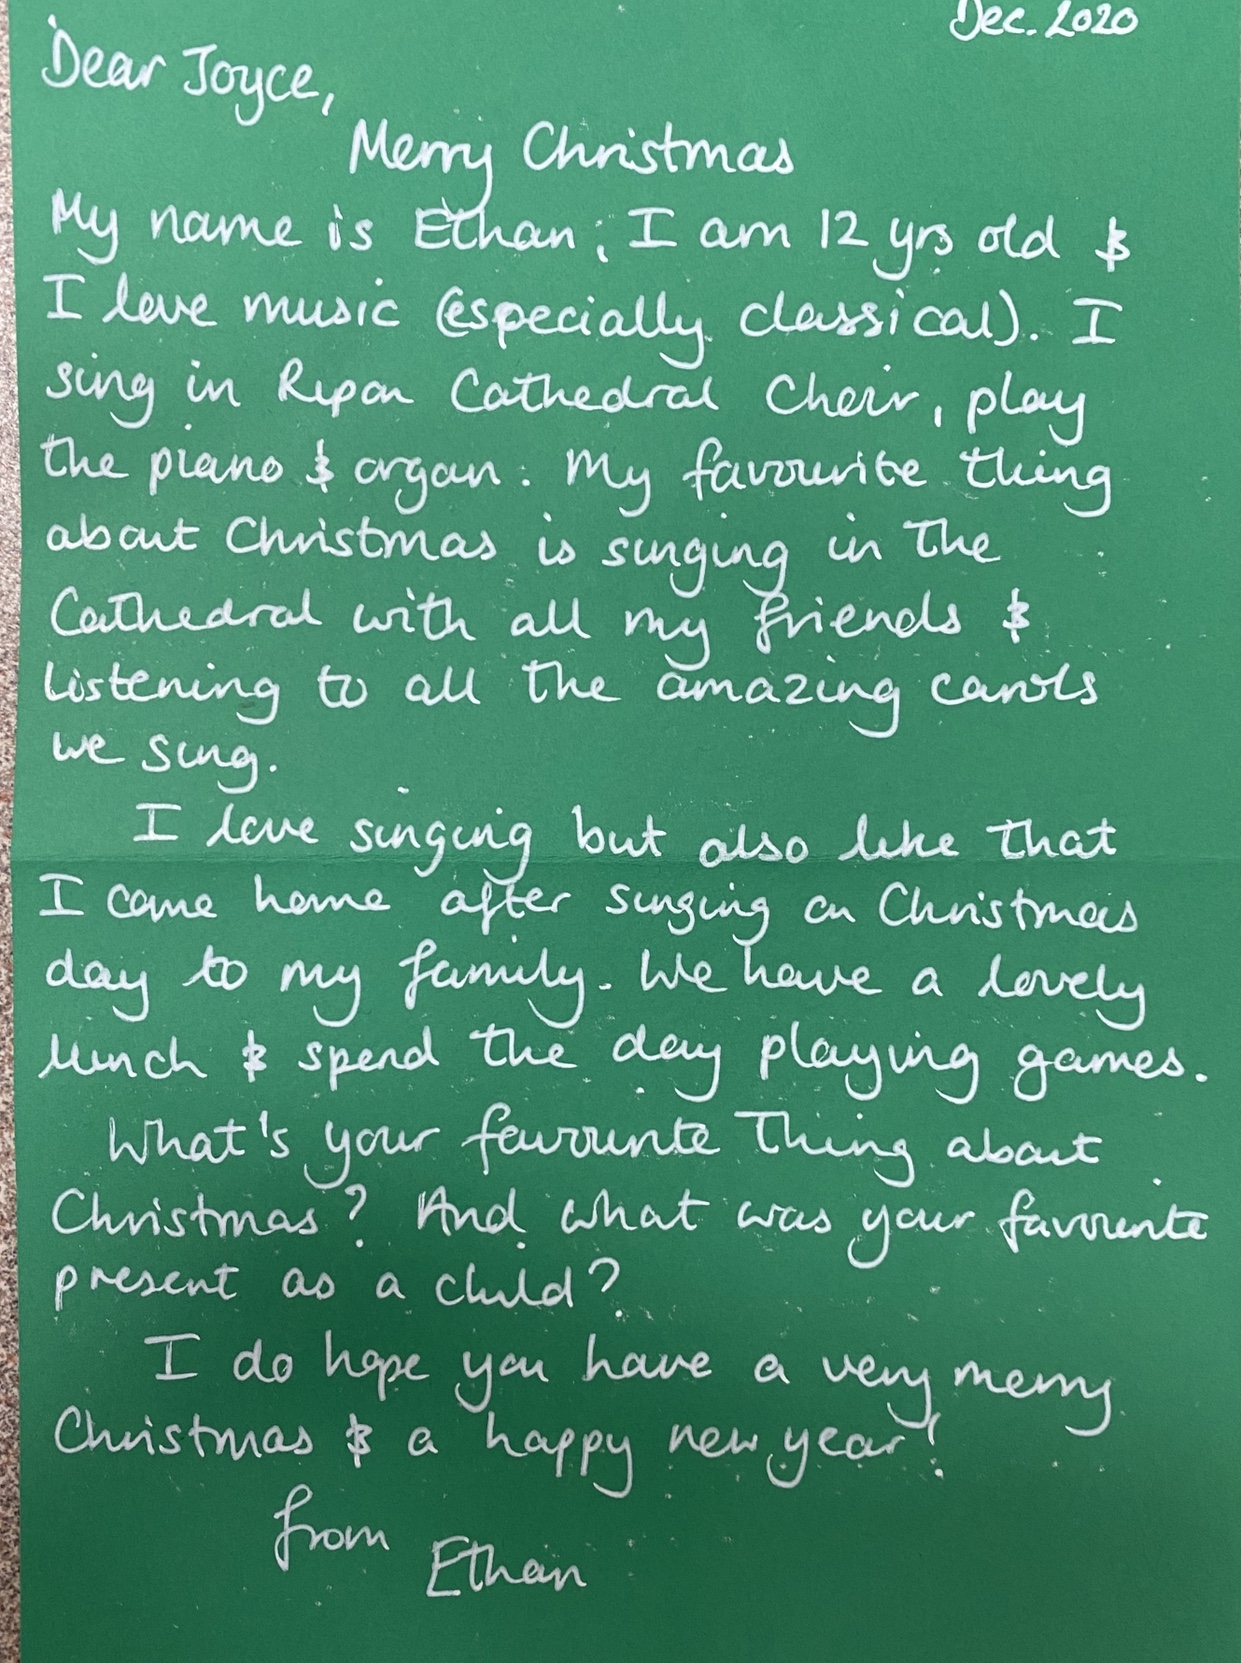 Dec. 2020
Dear Joyce,
Merry Christmas
My name is Ethan, I am 12 yrs old &
I love music (especially classical). I
sing in Ripon Cathedral Choir, play
the piano & organ. My favourite thing
about Christmas is singing in the
Cathedral with all my friends &
listening to all the amazing carols
we sing.
I love singing but also like that
I come home after singing on Christmas
day to my family. We have a lovely
lunch & spend the day playing games.
What's your favourite thing about
Christmas? And what was your favourite
present as a child?
I do hope you have a very merry
Christmas & a happy new year!
from
Ethan